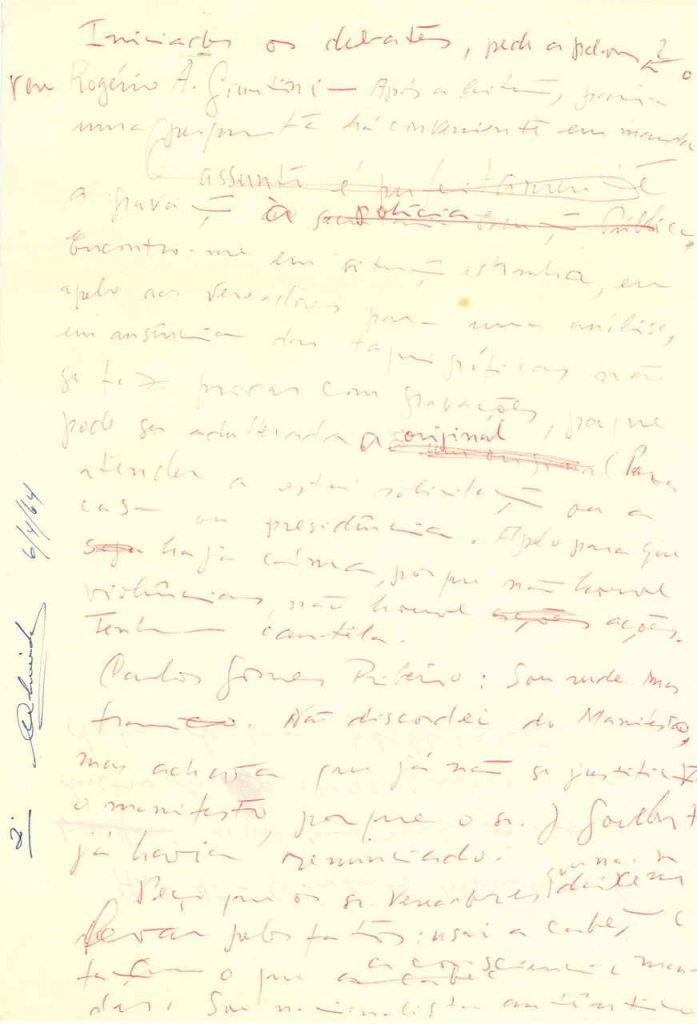 Iniciados os debates, pede a palavra o
ver Rogério A. Giuntini — Após a leitura,
uma pergunta há conveniente em mandar
assunto é perfeitamente
a gravação à polícia Pública,
Encontro-me em situação estranha, eu
apelo aos vereadores para uma análise,
em ausência das taquigráficas não
se faz provas com gravações, porque
pode ser adulterada a original Para
atender a esta solicitação ou a
casa ou presidência. Apelo para que
haja calma, porque não houve
violências, não houve ações.
Tenham cautela.
Carlos Gomes Ribeiro: Sou rude mas
franco. Não discordei do Manifesto,
mas achava que já não se justifica
o manifesto, porque o sr. J Goulart
já havia renunciado.
Peço que os sr. Vereadores deixem
levar pelos fatos: usai a cabeça e
façam o que a consciência man-
dar. Sou nacionalista autêntico
2i
6/4/64